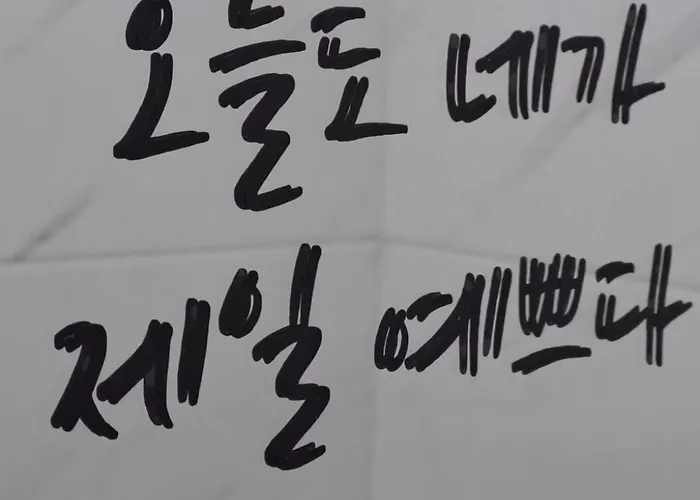 오늘도 네가
제일 예쁘다